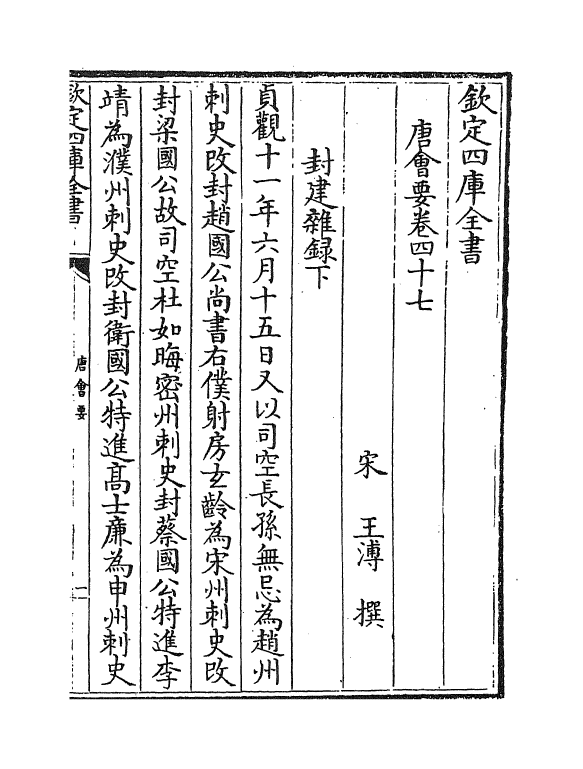 欽定四庫全書
唐會要卷四十七
宋 王溥 撰
封建雜録下
貞觀十一年六月十五日又以司空長孫無忌為趙州
刺史改封趙國公尚書右僕射房玄齡為宋州刺史改
封梁國公故司空杜如晦密州刺史封蔡國公特進李
靖為濮州刺史改封衛國公特進髙士廉為申州刺史
欽定四庫全書
唐會要
一